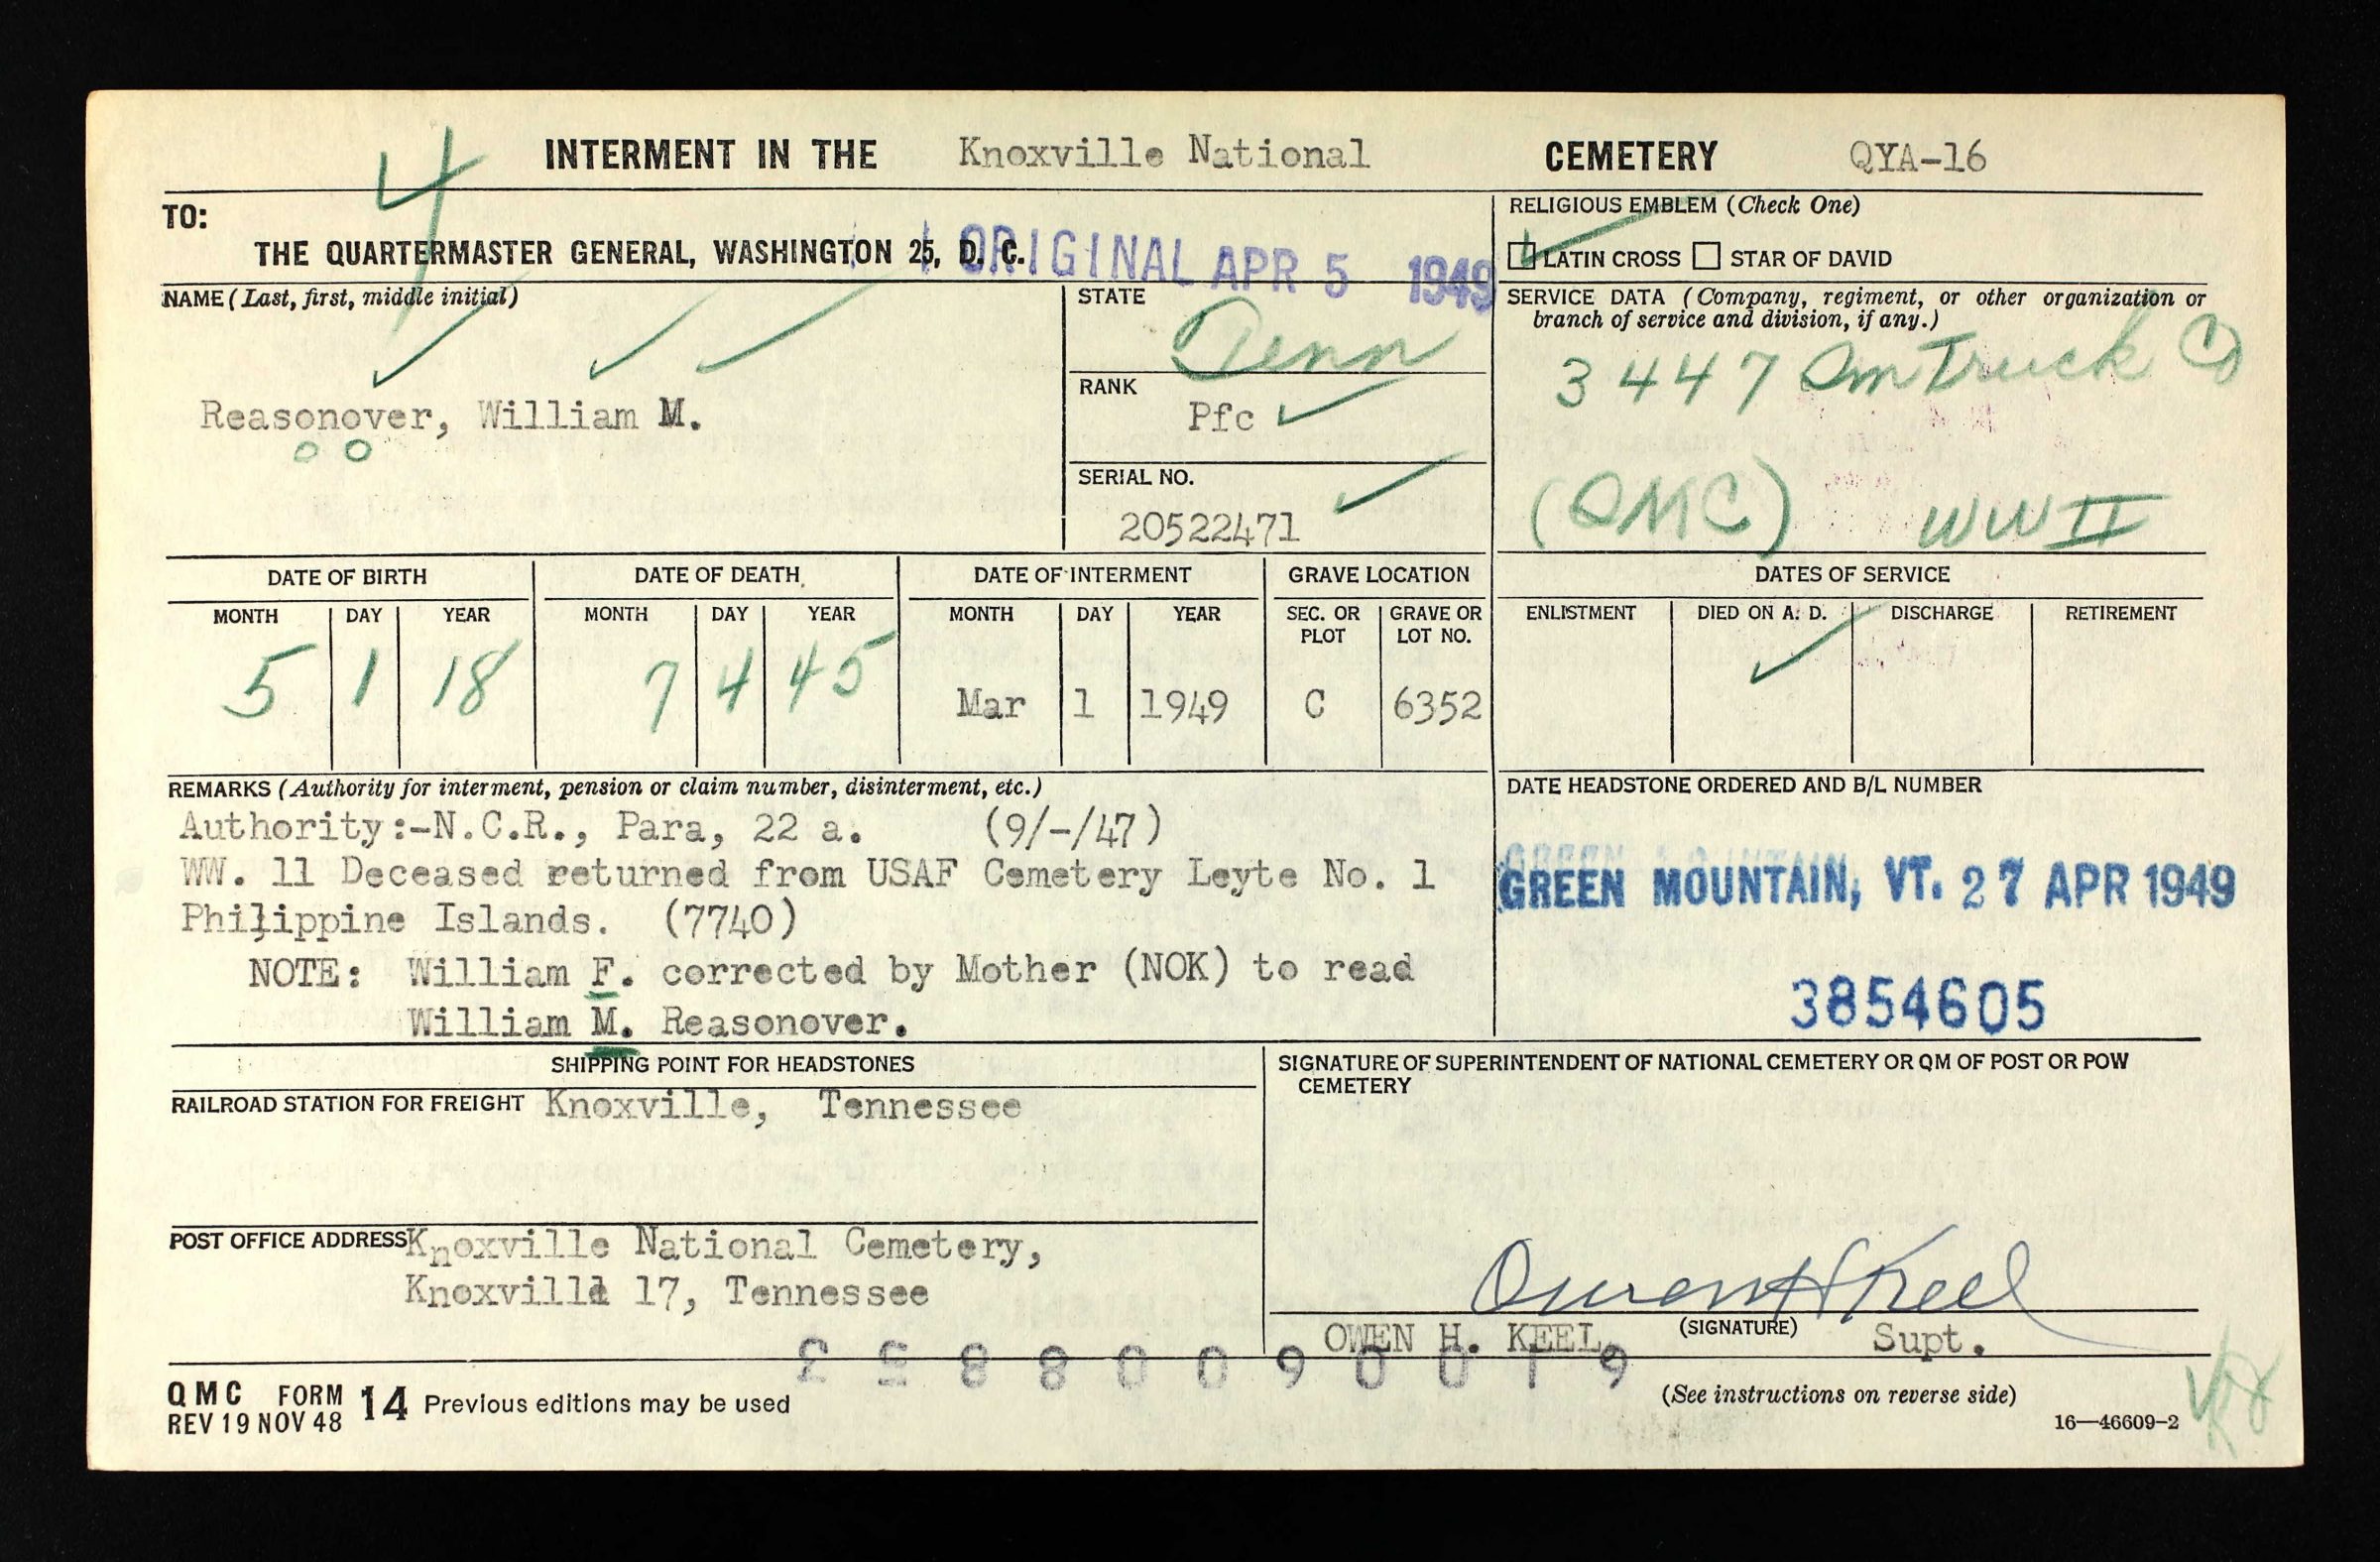 INTERMENT IN THE Knoxville National CEMETERY QYA-16
TO:
THE QUARTERMASTER GENERAL, WASHINGTON 25, D. C.
ORIGINAL APR 5 1949
4
RELIGIOUS EMBLEM (Check One)
LATIN CROSS STAR OF DAVID
NAME (Last, first, middle initial)
Reasonover, William M.
STATE
Tenn
RANK
Pfc
SERIAL NO.
20522471
SERVICE DATA (Company, regiment, or other organization or
branch of service and division, if any.)
3447 Qm Truck Co
(QMC) WW II
DATE OF BIRTH DATE OF DEATH DATE OF INTERMENT GRAVE LOCATION DATES OF SERVICE
MONTH DAY YEAR MONTH DAY YEAR MONTH DAY YEAR SEC. OR PLOT GRAVE OR LOT NO. ENLISTMENT DIED ON A. D. DISCHARGE RETIREMENT
5 1 18 7 4 45 Mar 1 1949 C 6352
REMARKS (Authority for interment, pension or claim number, disinterment, etc.)
Authority:-N.C.R., Para, 22 a. (9/-/47)
WW. 11 Deceased returned from USAF Cemetery Leyte No. 1
Philippine Islands. (7740)
NOTE: William F. corrected by Mother (NOK) to read
William M. Reasonover.
DATE HEADSTONE ORDERED AND B/L NUMBER
GREEN MOUNTAIN, VT. 27 APR 1949
3854605
SHIPPING POINT FOR HEADSTONES
RAILROAD STATION FOR FREIGHT Knoxville, Tennessee
POST OFFICE ADDRESS Knoxville National Cemetery,
Knoxville 17, Tennessee
SIGNATURE OF SUPERINTENDENT OF NATIONAL CEMETERY OR QM OF POST OR POW
CEMETERY
Owen H Keel
(SIGNATURE)
OWEN H. KEEL, Supt.
QMC FORM 14 Previous editions may be used
REV 19 NOV 48
(See instructions on reverse side)
16—46609-2